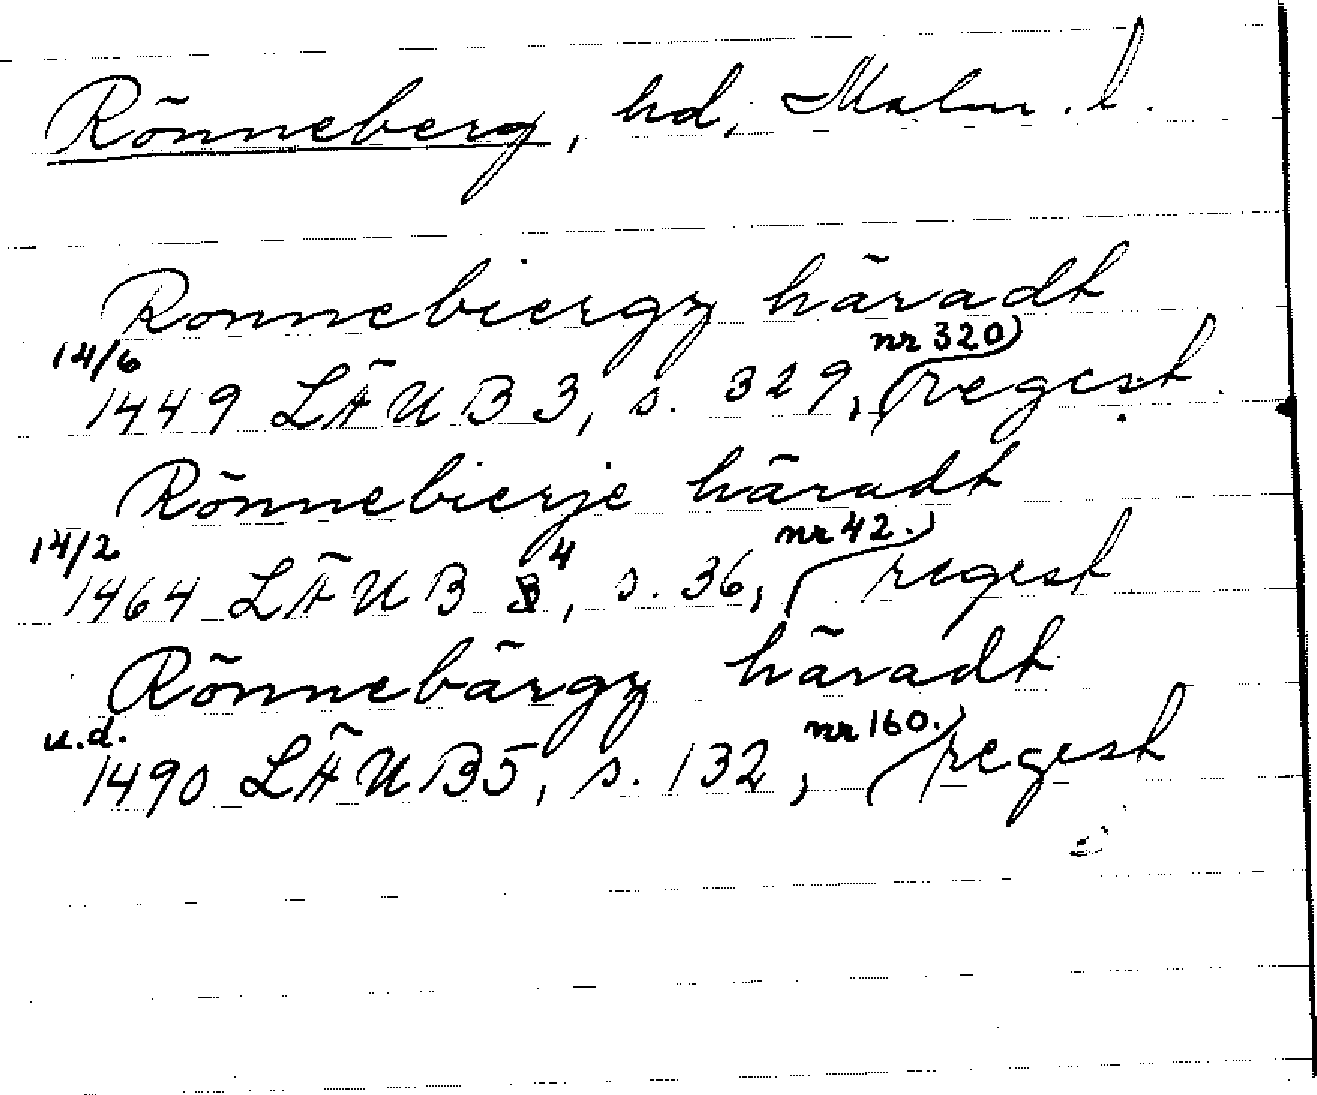 Rönneberg, hd, Malm. l.
Ronnebiergz häradt
14/6 nr 320
1449 LÄUB 3, s. 329, regest.
Rönnebierje häradt
14/2 4 nr 42.
1464 LÄUB 3, s. 36, regest
Rönnebärgz häradt
u.d. nr 160.
1490 LÄUB5, s. 132, regest